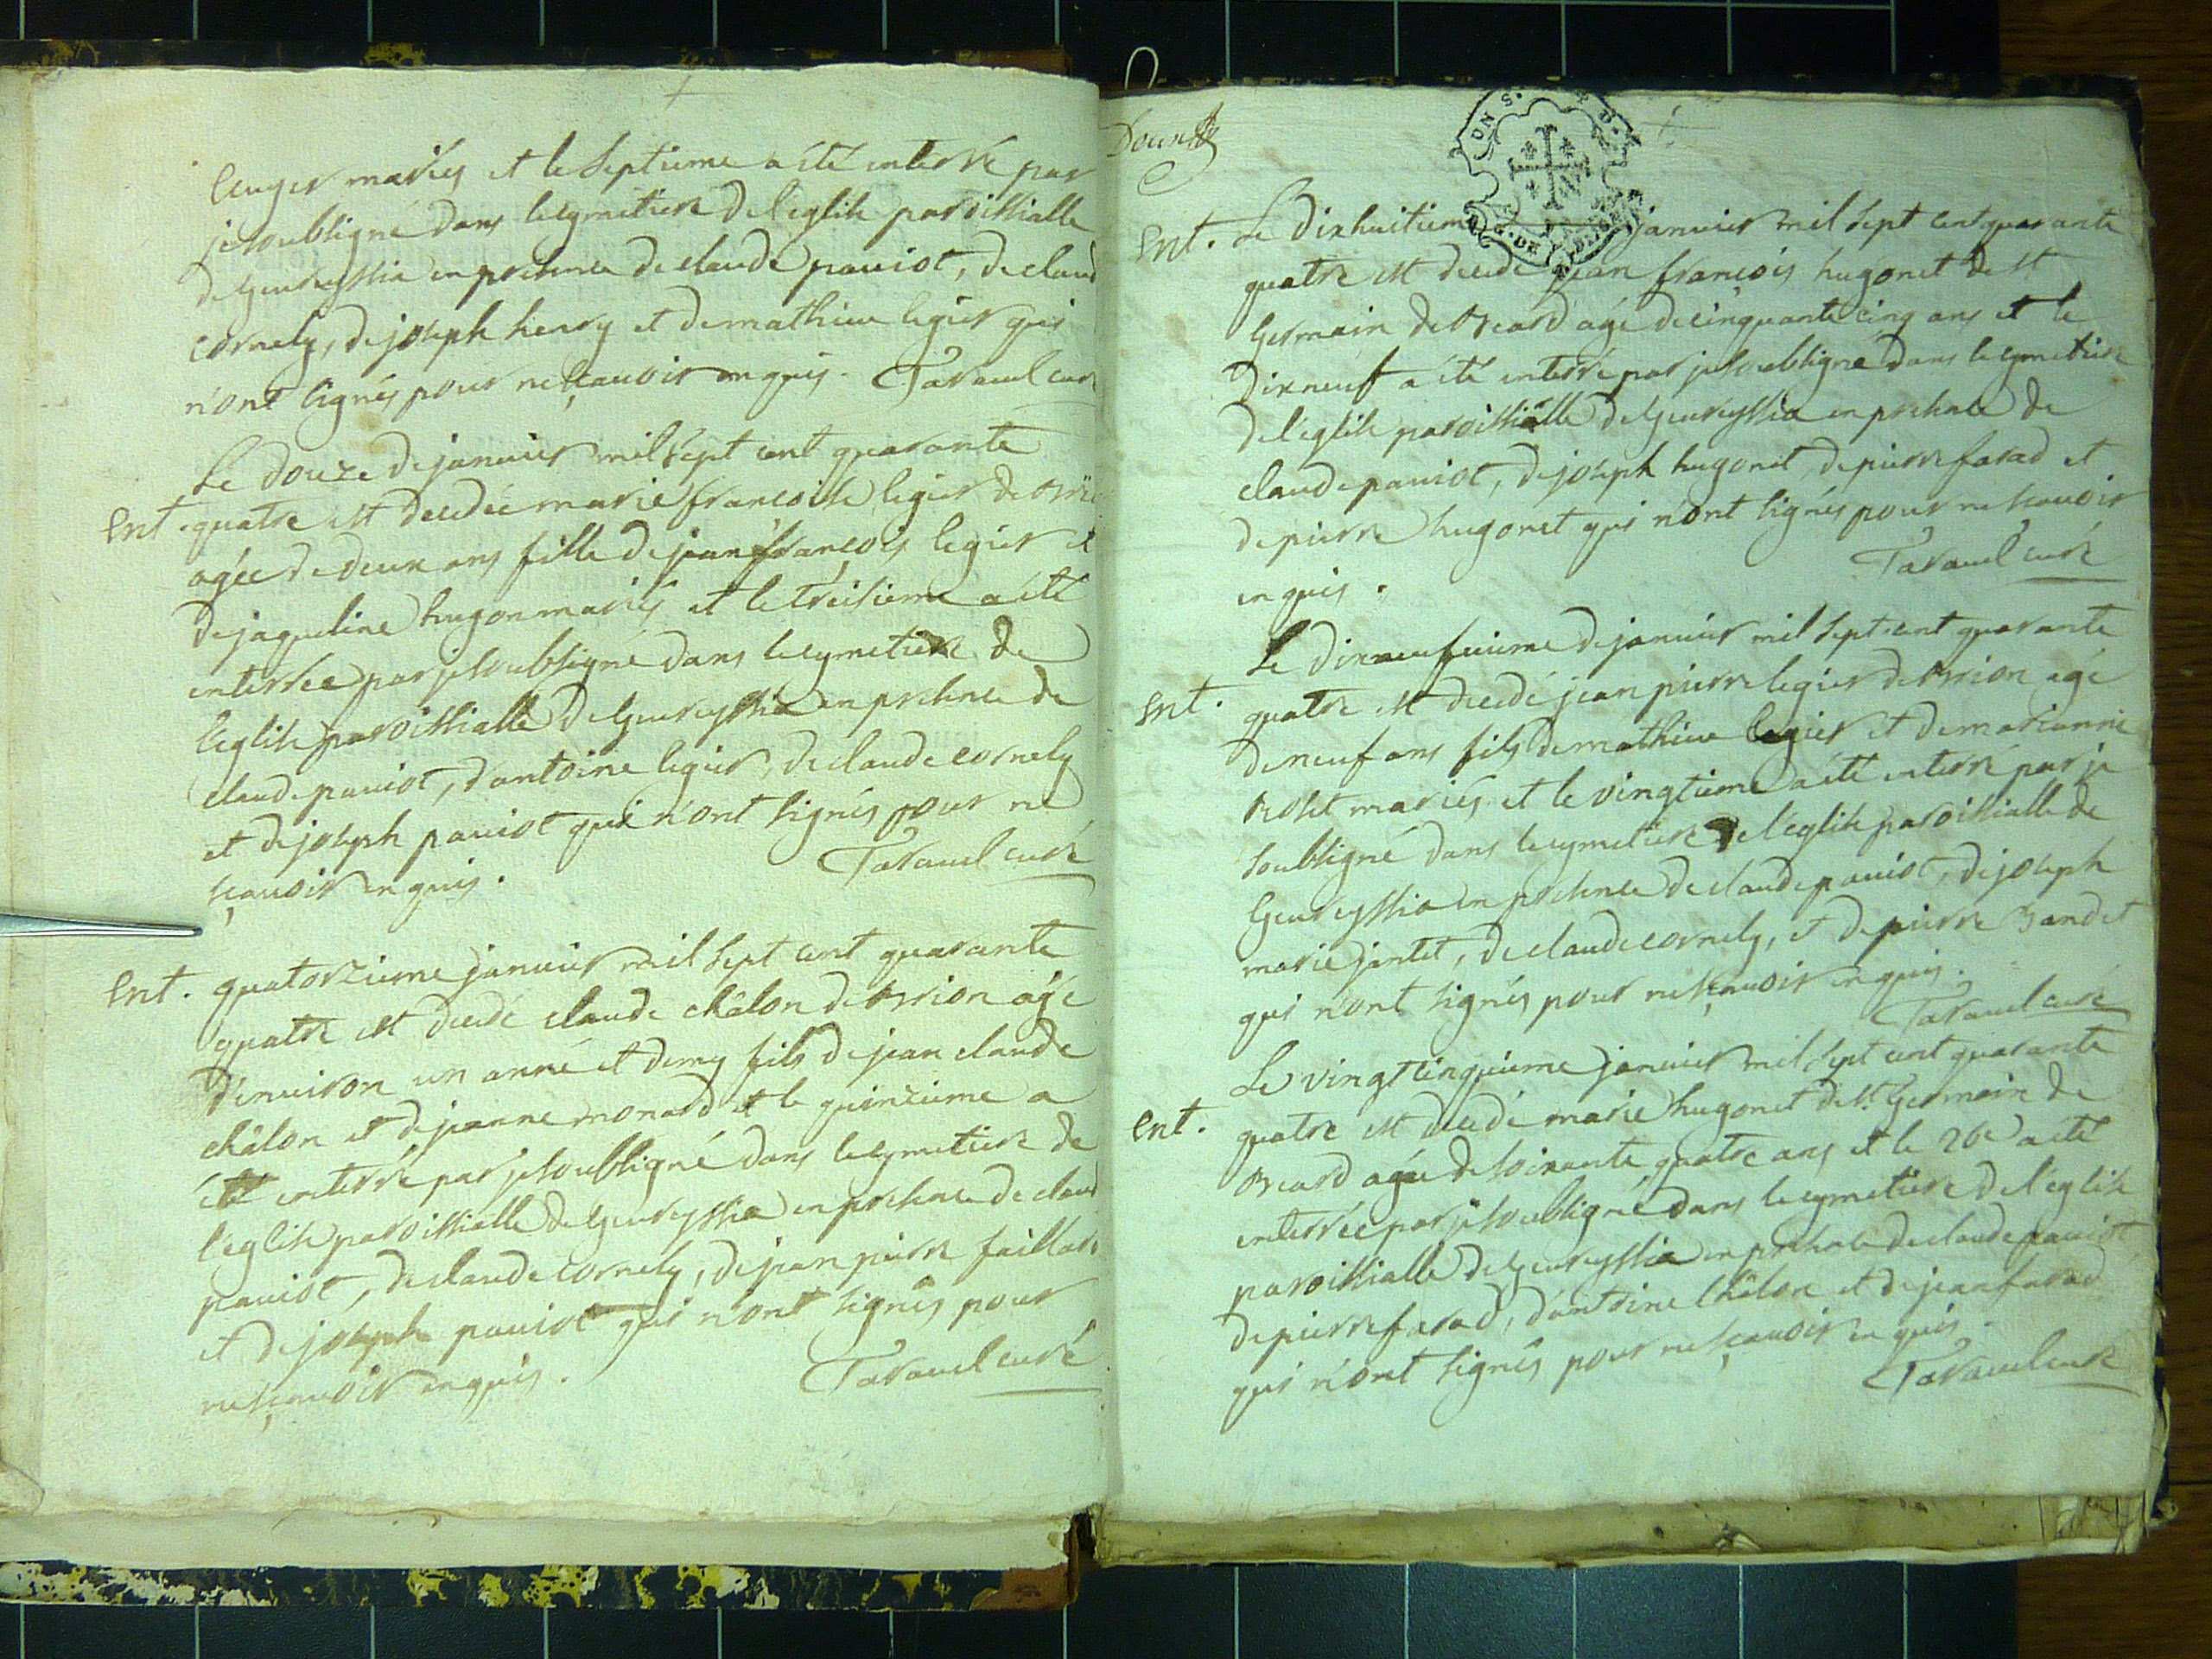 leuger mariés et le septieme a été enterré par
je soubsigné dans le cymetiere de l'eglise paroissialle
de geureyssia en presence de claude pauiot, de claud
cornely, de joseph henry et de mathieu legier qui
n'ont signés pour ne sçauoir enquis. Tarauel curé
Le douze de januier mil sept cent quarante
Ent. quatre est decedée marie francoise legier de
agée de deux ans fille de jean françois legier et
de jaqueline hugon mariés et le treisieme a été
enterrée par je soubsigné dans le cymetiere de
l'eglise paroissialle de geureyssia en presence de
claude pauiot, d'antoine legier, de claude cornely
et de joseph pauiot qui n'ont signés pour ne
sçauoir enquis. Tarauel curé
Ent. quatorzieme januier mil sept cent quarante
quatre est decedé claude châlon de Brion agé
d'enuiron un anné et demy fils de jean claude
châlon et de jeanne monard et le quinzieme a
été enterré par je soubsigné dans le cymetiere de
l'eglise paroissialle de geureyssia en presence de claud
pauiot, de claude cornely, de jean pierre faillard
et de joseph pauiot qui n'ont signés pour
ne sçauoir enquis. Tarauel curé
Ent. Le dixhuitieme januier mil sept cent quarante
quatre est decedé jean françois hugonet de st
germain de Beard agé de cinquante cinq ans et le
dixneuf a été enterré par je soubsigné dans le cymetiere
de l'eglise paroissialle de geureyssia en presence de
claude pauiot, de joseph hugonet, de pierre farad et
de pierre hugonet qui n'ont signés pour ne scauoir
enquis. Tarauel curé
Le dixneufuieme de januier mil sept cent quarante
Ent. quatre est decedé jean pierre legier de Brion agé
de neuf ans fils de mathieu legier et de marianne
Roset mariés et le vingtieme a été enterré par je
soubsigné dans le cymetiere de l'eglise paroissialle de
geureyssia en presence de claude pauiot, de joseph
marie jantet, de claude cornely, et de pierre Bandet
qui n'ont signés pour ne sçauoir enquis.
Tarauel curé
Le vingt cinquieme januier mil sept cent quarante
Ent. quatre est decedé marie hugonet de st. germain de
Beard agée de soixante quatre ans et le 26e a été
enterrée par je soubsigné dans le cymetiere de l'eglise
paroissialle de geureyssia en presence de claude pauiot
de pierre farad, d'antoine Châlon et de jean farad
qui n'ont signés pour ne sçauoir enquis.
Tarauel curé